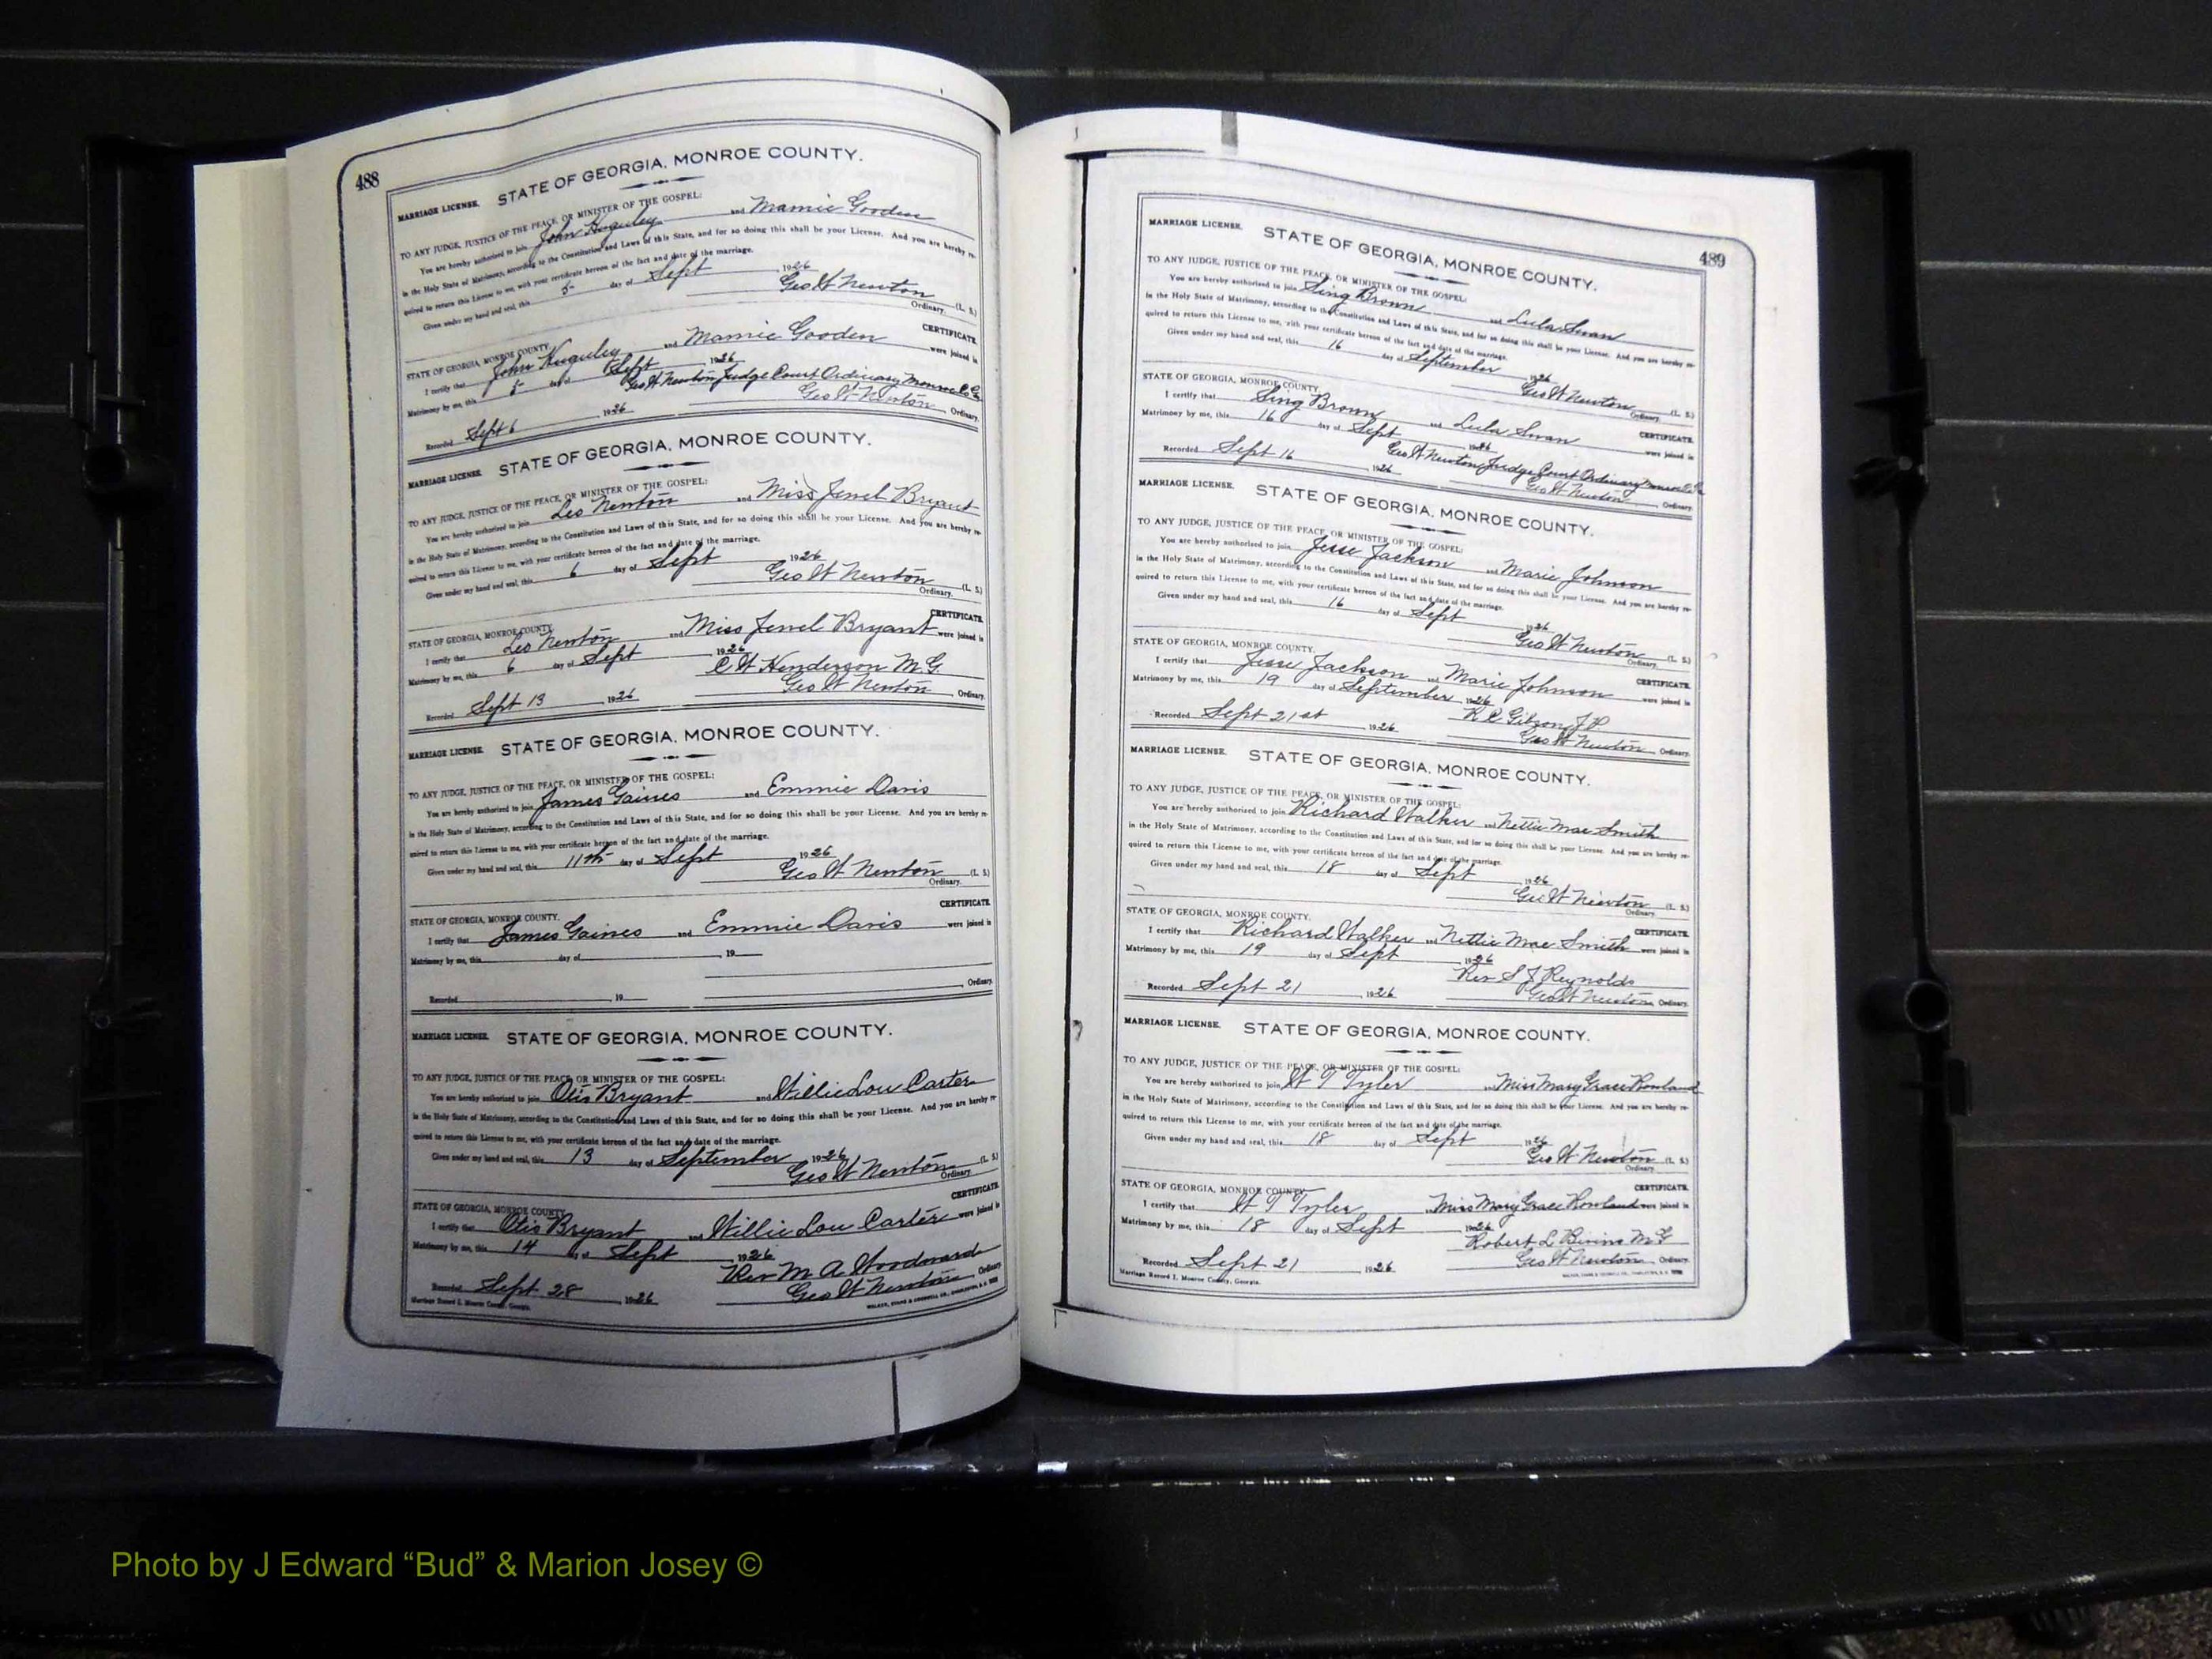 488
STATE OF GEORGIA, MONROE COUNTY.
MARRIAGE LICENSE.
TO ANY JUDGE, JUSTICE OF THE PEACE, OR MINISTER OF THE GOSPEL:
You are hereby authorized to join John Huguley and Mamie Gooden
in the Holy State of Matrimony, according to the Constitution and Laws of this State, and for so doing this shall be your License. And you are hereby re-
quired to return this License to me, with your certificate hereon of the fact and date of the marriage.
Given under my hand and seal, this 5 day of Sept 1926
Geo W Newton (L. S.)
Ordinary.
CERTIFICATE.
STATE OF GEORGIA, MONROE COUNTY.
I certify that John Huguley and Mamie Gooden were joined in
Matrimony by me, this 5 day of Sept 1926
Geo W Newton Judge Court Ordinary Monroe Co Ga
Recorded Sept 6 1926 Geo W Newton Ordinary.
MARRIAGE LICENSE. STATE OF GEORGIA, MONROE COUNTY.
TO ANY JUDGE, JUSTICE OF THE PEACE, OR MINISTER OF THE GOSPEL:
You are hereby authorized to join Leo Newton and Miss Jewel Bryant
in the Holy State of Matrimony, according to the Constitution and Laws of this State, and for so doing this shall be your License. And you are hereby re-
quired to return this License to me, with your certificate hereon of the fact and date of the marriage.
Given under my hand and seal, this 6 day of Sept 1926
Geo W Newton (L. S.)
Ordinary.
CERTIFICATE.
STATE OF GEORGIA, MONROE COUNTY.
I certify that Leo Newton and Miss Jewel Bryant were joined in
Matrimony by me, this 6 day of Sept 1926
C W Henderson M.G.
Recorded Sept 13 1926 Geo W Newton, Ordinary.
MARRIAGE LICENSE. STATE OF GEORGIA, MONROE COUNTY.
TO ANY JUDGE, JUSTICE OF THE PEACE, OR MINISTER OF THE GOSPEL:
You are hereby authorized to join James Gaines and Emmie Davis
in the Holy State of Matrimony, according to the Constitution and Laws of this State, and for so doing this shall be your License. And you are hereby re-
quired to return this License to me, with your certificate hereon of the fact and date of the marriage.
Given under my hand and seal, this 11th day of Sept 1926
Geo W Newton (L. S.)
Ordinary.
CERTIFICATE.
STATE OF GEORGIA, MONROE COUNTY.
I certify that James Gaines and Emmie Davis were joined in
Matrimony by me, this day of , 19
Recorded , 19 , Ordinary.
MARRIAGE LICENSE. STATE OF GEORGIA, MONROE COUNTY.
TO ANY JUDGE, JUSTICE OF THE PEACE, OR MINISTER OF THE GOSPEL:
You are hereby authorized to join Otis Bryant and Willie Lou Carter
in the Holy State of Matrimony, according to the Constitution and Laws of this State, and for so doing this shall be your License. And you are hereby re-
quired to return this License to me, with your certificate hereon of the fact and date of the marriage.
Given under my hand and seal, this 13 day of September 1926
Geo W Newton (L. S.)
Ordinary.
CERTIFICATE.
STATE OF GEORGIA, MONROE COUNTY.
I certify that Otis Bryant and Willie Lou Carter were joined in
Matrimony by me, this 14 day of Sept 1926
Rev M A Woodward
Recorded Sept 28 1926 Geo W Newton Ordinary.
Marriage Record I. Monroe County, Georgia.
489
MARRIAGE LICENSE. STATE OF GEORGIA, MONROE COUNTY.
TO ANY JUDGE, JUSTICE OF THE PEACE, OR MINISTER OF THE GOSPEL:
You are hereby authorized to join Sing Brown and Lula Swan
in the Holy State of Matrimony, according to the Constitution and Laws of this State, and for so doing this shall be your License. And you are hereby re-
quired to return this License to me, with your certificate hereon of the fact and date of the marriage.
Given under my hand and seal, this 16 day of September 1926
Geo W Newton (L. S.)
Ordinary.
STATE OF GEORGIA, MONROE COUNTY. CERTIFICATE.
I certify that Sing Brown and Lula Swan were joined in
Matrimony by me, this 16 day of Sept 1926
Geo W Newton Judge Court Ordinary Monroe Co Ga
Recorded Sept 16 1926 Geo W Newton Ordinary.
MARRIAGE LICENSE. STATE OF GEORGIA, MONROE COUNTY.
TO ANY JUDGE, JUSTICE OF THE PEACE, OR MINISTER OF THE GOSPEL:
You are hereby authorized to join Jesse Jackson and Marie Johnson
in the Holy State of Matrimony, according to the Constitution and Laws of this State, and for so doing this shall be your License. And you are hereby re-
quired to return this License to me, with your certificate hereon of the fact and date of the marriage.
Given under my hand and seal, this 16 day of Sept 1926
Geo W Newton (L. S.)
Ordinary.
STATE OF GEORGIA, MONROE COUNTY. CERTIFICATE.
I certify that Jesse Jackson and Marie Johnson were joined in
Matrimony by me, this 19 day of September 1926
R C Gibson J.P.
Recorded Sept 21st 1926 Geo W Newton, Ordinary.
MARRIAGE LICENSE. STATE OF GEORGIA, MONROE COUNTY.
TO ANY JUDGE, JUSTICE OF THE PEACE, OR MINISTER OF THE GOSPEL:
You are hereby authorized to join Richard Walker and Nettie Mae Smith
in the Holy State of Matrimony, according to the Constitution and Laws of this State, and for so doing this shall be your License. And you are hereby re-
quired to return this License to me, with your certificate hereon of the fact and date of the marriage.
Given under my hand and seal, this 18 day of Sept 1926
Geo W Newton (L. S.)
Ordinary.
STATE OF GEORGIA, MONROE COUNTY. CERTIFICATE.
I certify that Richard Walker and Nettie Mae Smith were joined in
Matrimony by me, this 19 day of Sept 1926
Rev S J Reynolds
Recorded Sept 21 1926 Geo W Newton, Ordinary.
MARRIAGE LICENSE. STATE OF GEORGIA, MONROE COUNTY.
TO ANY JUDGE, JUSTICE OF THE PEACE, OR MINISTER OF THE GOSPEL:
You are hereby authorized to join W T Tyler and Miss Mary Grace Rowland
in the Holy State of Matrimony, according to the Constitution and Laws of this State, and for so doing this shall be your License. And you are hereby re-
quired to return this License to me, with your certificate hereon of the fact and date of the marriage.
Given under my hand and seal, this 18 day of Sept 1926
Geo W Newton (L. S.)
Ordinary.
STATE OF GEORGIA, MONROE COUNTY. CERTIFICATE.
I certify that W T Tyler and Miss Mary Grace Rowland were joined in
Matrimony by me, this 18 day of Sept 1926
Robert L Bivins M G
Recorded Sept 21 1926 Geo W Newton, Ordinary.
Marriage Record I. Monroe County, Georgia.
Photo by J Edward “Bud” & Marion Josey ©